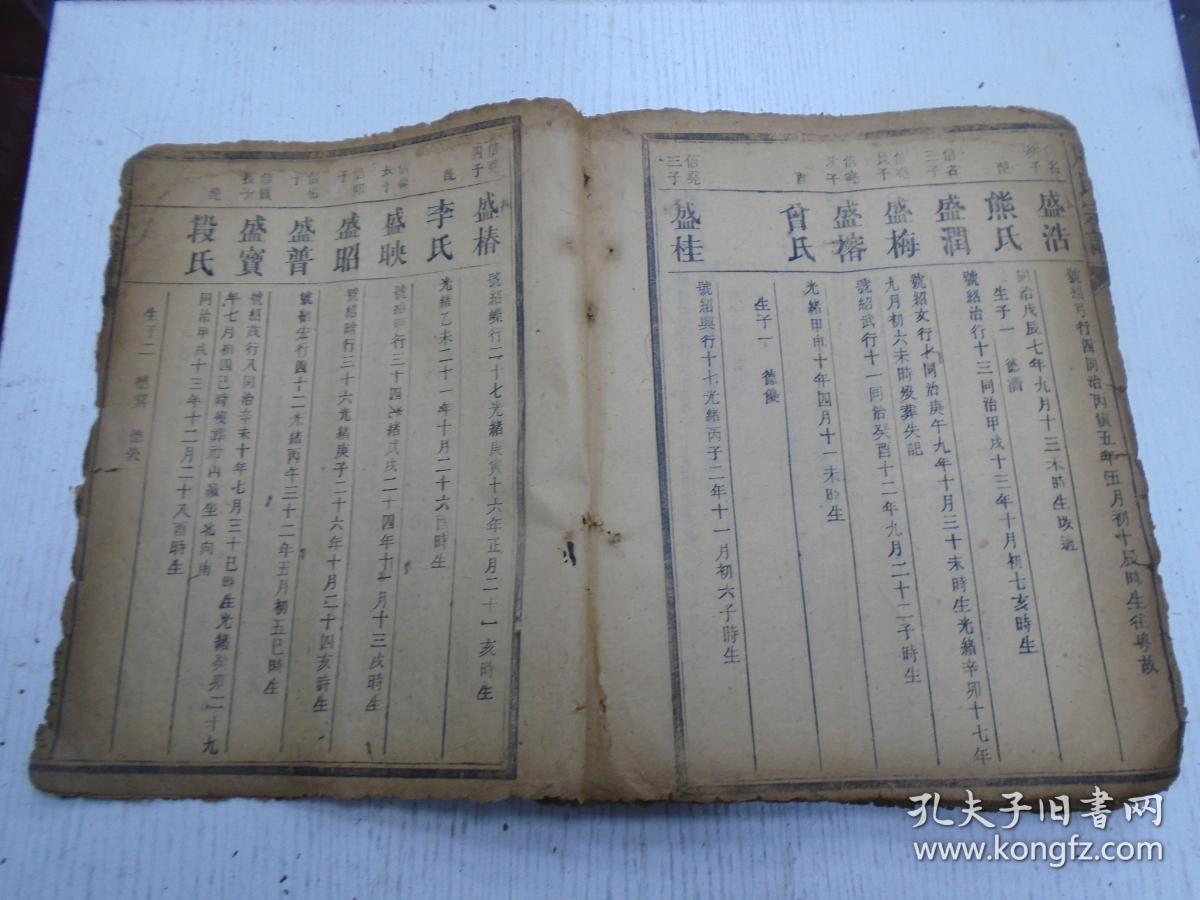 盛浩
號紹弓行四同治丙寅五年五月初十辰時生往粵故
熊氏
同治戊辰七年九月十三未時生改適
生子一 德濆
信名三子
盛潤
號紹治行十三同治甲戌十三年十月初七亥時生
信堯長子
盛梅
號紹文行七同治庚午九年十月三十未時生光緒辛卯十七年
九月初六未時歿葬失記
信堯次子
盛榕
號紹武行十一同治癸酉十二年九月二十二子時生
曾氏
光緒甲申十年四月十一未時生
生子一 德優
信堯三子
盛桂
號紹興行十七光緒丙子二年十一月初六子時生
信堯四子
盛椿
號紹榮行二十七光緒庚寅十六年正月二十一亥時生
配
李氏
光緒乙未二十一年十月二十六酉時生
長子
盛映
行三十四光緒戊戌二十四年十一月十三戌時生
子
盛昭
號紹晗行三十六光緒庚子二十六年十月二十四亥時生
子
盛普
號紹宏行四十二光緒丙午三十二年五月初五巳時生
長子
盛寶
號紹茂行八同治辛未十年七月三十巳時生光緒癸卯二十九
年七月初四己時歿葬對山嶺坐北向南
配
段氏
同治甲戌十三年十二月二十八酉時生
生子二
孔夫子旧书网
www.kongfz.com